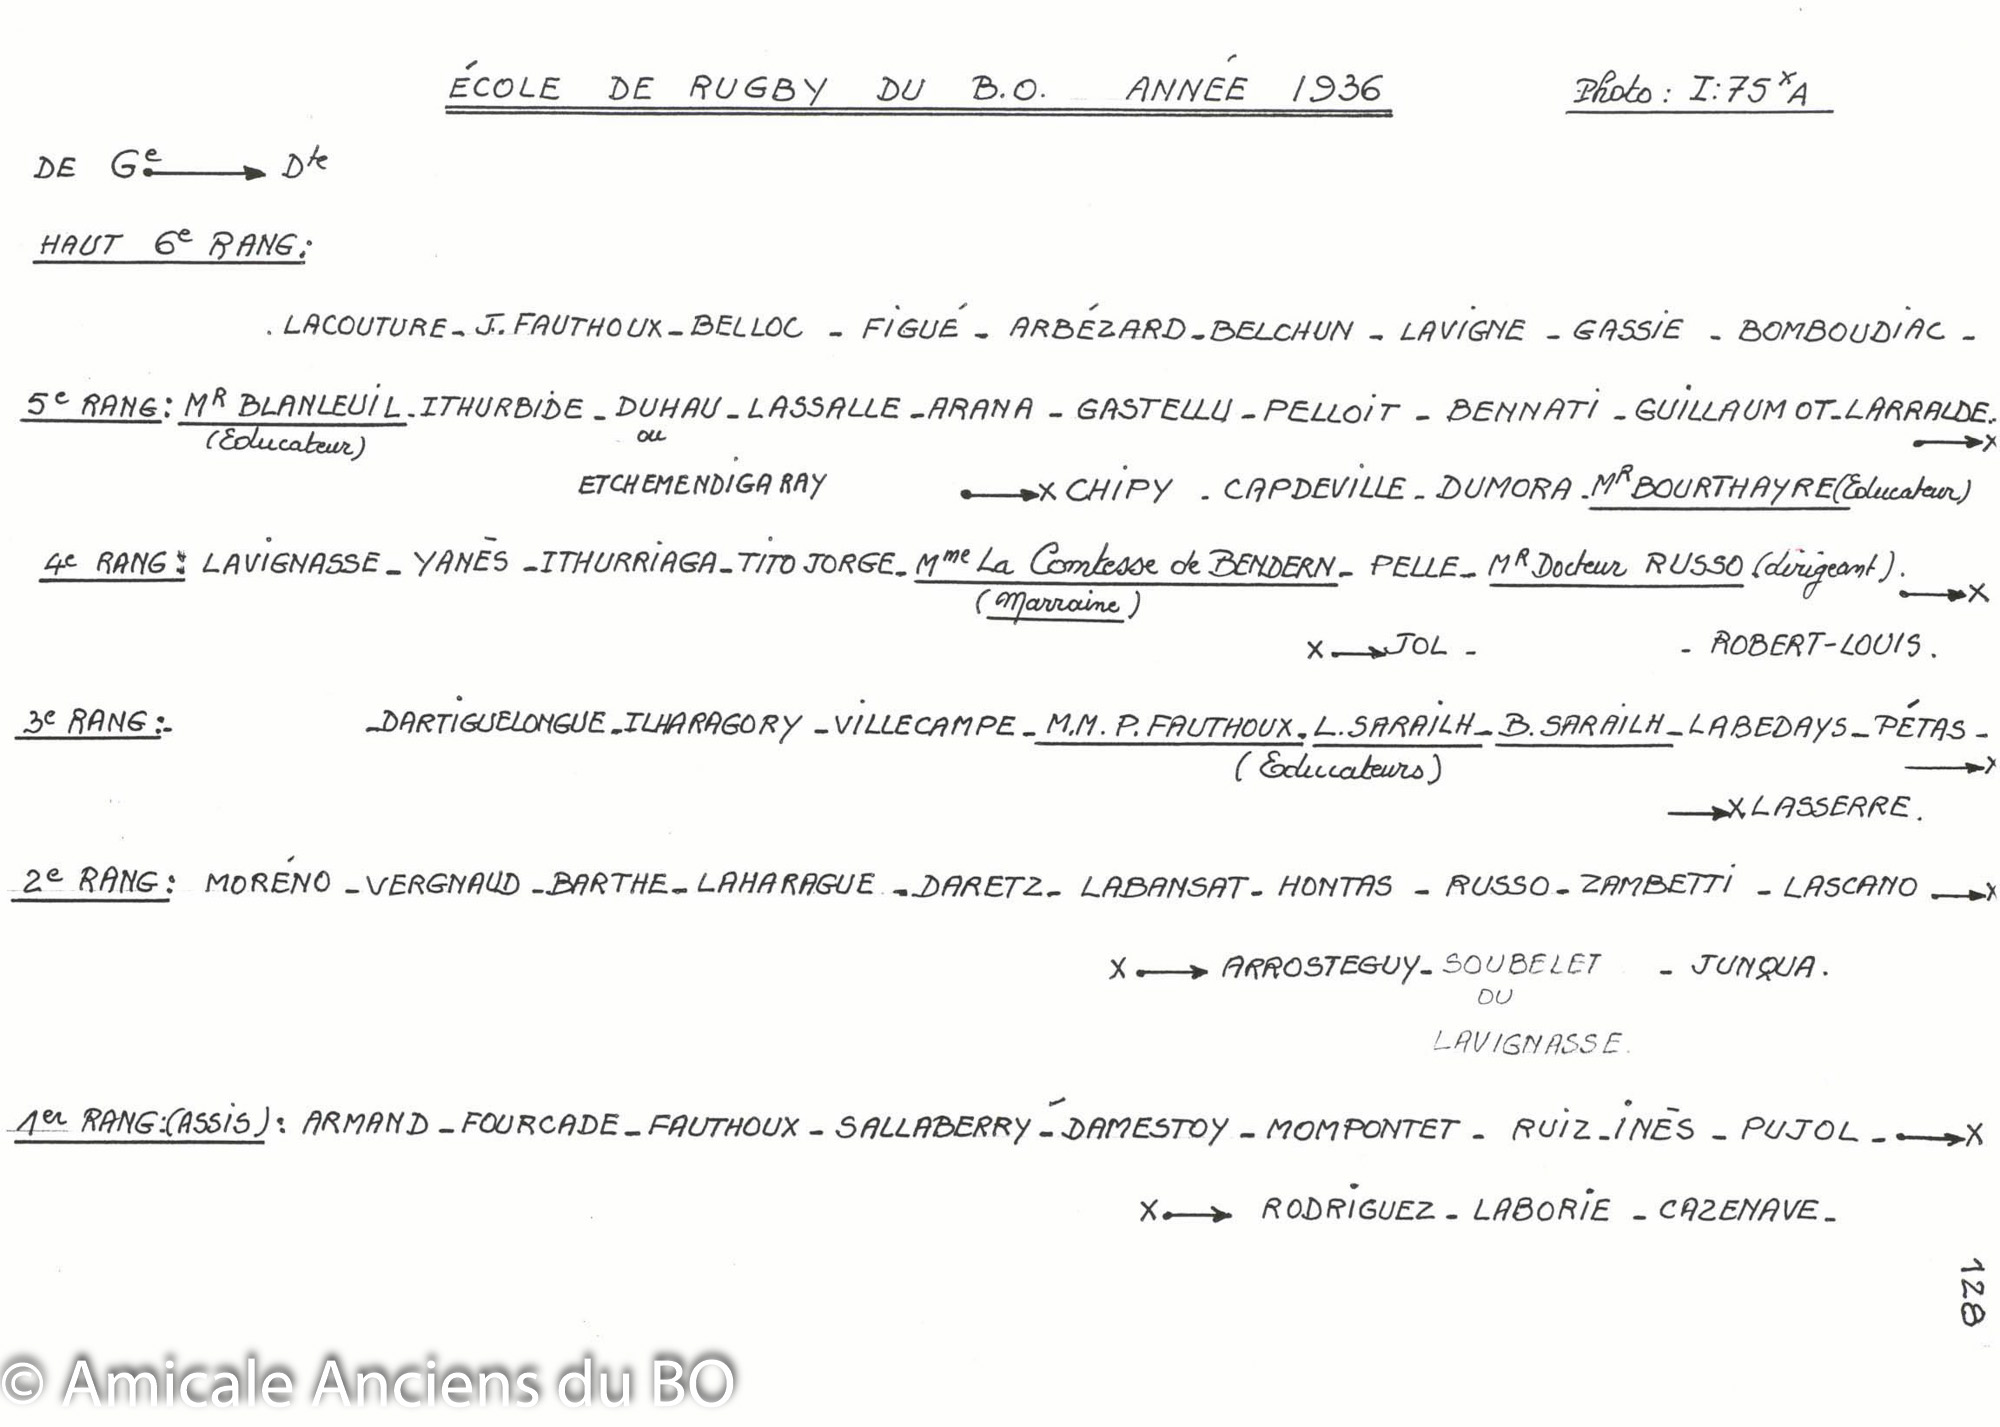 ÉCOLE DE RUGBY DU B.O. ANNÉE 1936 Photo: I:75 x A
DE Ge → Dte
HAUT 6e RANG:
. LACOUTURE - J. FAUTHOUX - BELLOC - FIGUÉ - ARBÉZARD - BELCHUN - LAVIGNE - GASSIE - BOMBOUDIAC -
5e RANG: MR BLANLEUIL - ITHURBIDE - DUHAU - LASSALLE - ARANA - GASTELLU - PELLOIT - BENNATI - GUILLAUMOT - LARRALDE. → X
(Educateur) ou
ETCHEMENDIGARAY → X CHIPY - CAPDEVILLE - DUMORA - MR BOURTHAYRE (Educateur)
4e RANG: LAVIGNASSE - YANÈS - ITHURRIAGA - TITO JORGE - Mme La Comtesse de BENDERN - PELLE - MR Docteur RUSSO (dirigeant). → X
(Marraine)
X → JOL - - ROBERT-LOUIS.
3e RANG:- - DARTIGUELONGUE - ILHARAGORY - VILLECAMPE - M.M. P. FAUTHOUX - L. SARAILH - B. SARAILH - LABEDAYS - PÉTAS - → X
(Educateurs)
→ X LASSERRE.
2e RANG: MORÉNO - VERGNAUD - BARTHE - LAHARAGUE - DARETZ - LABANSAT - HONTAS - RUSSO - ZAMBETTI - LASCANO → X
X → ARROSTEGUY - SOUBELET - JUNQUA.
OU
LAVIGNASSE.
1er RANG:(ASSIS): ARMAND - FOURCADE - FAUTHOUX - SALLABERRY - DAMESTOY - MOMPONTET - RUIZ - INÈS - PUJOL - → X
X → RODRIGUEZ - LABORIE - CAZENAVE -
128
© Amicale Anciens du BO